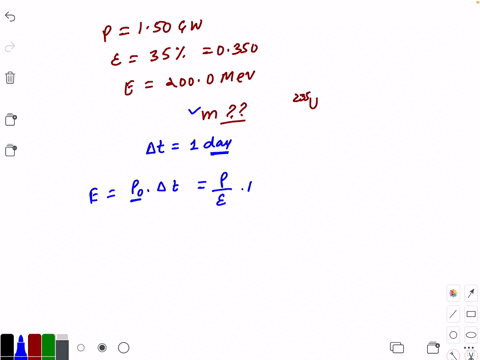 P = 1.50 GW
ε = 35% = 0.350
E = 200.0 MeV
✓m ??
235U
Δt = 1 day
E = P0 · Δt = P/ε · 1